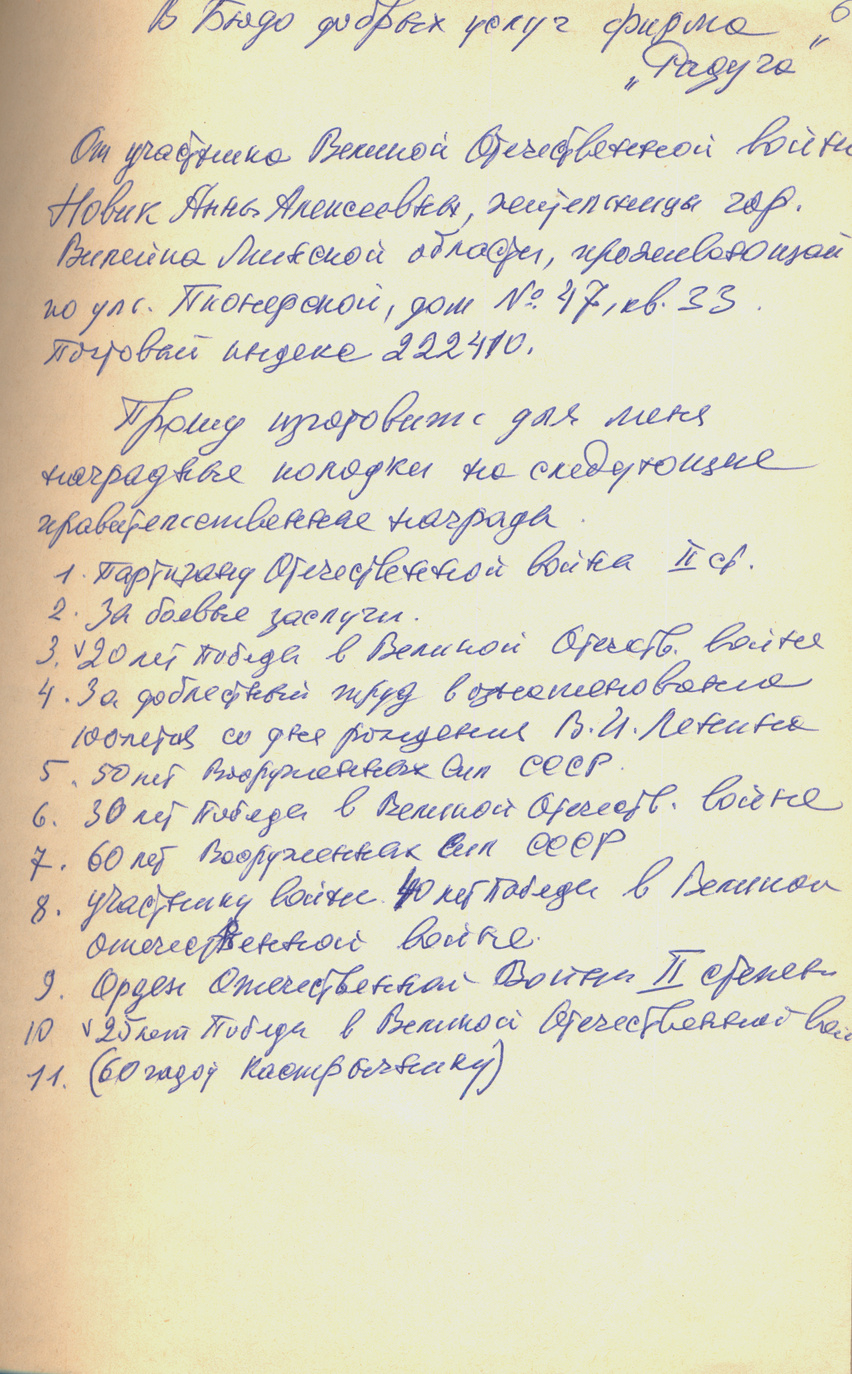 В Бюро добрых услуг фирма "
„Радуга"
От участника Великой Отечественной войны
Новик Анны Алексеевны, жительницы гор.
Вилейка Минской области, проживающей
по ул. Пионерской, дом № 47, кв. 33.
Почтовый индекс 222410.
Прошу изготовить для меня
наградные колодки на следующие
правительственные награды.
1. Партизану Отечественной война II ст.
2. За боевые заслуги.
3. ∨20 лет Победы в Великой Отечеств. войне
4. За доблестный труд в ознаменование
100летия со дня рождения В.И. Ленина
5. 50 лет Вооруженных Сил СССР.
6. 30 лет Победы в Великой Отечеств. войне
7. 60 лет Вооруженных Сил СССР
8. участнику войны 40 лет Победы в Великой
отечественной войне.
9. Орден Отечественной Войны II степени
10 ∨25 лет Победы в Великой Отечественной вой
11. (60 гадоў Кастрычніку)